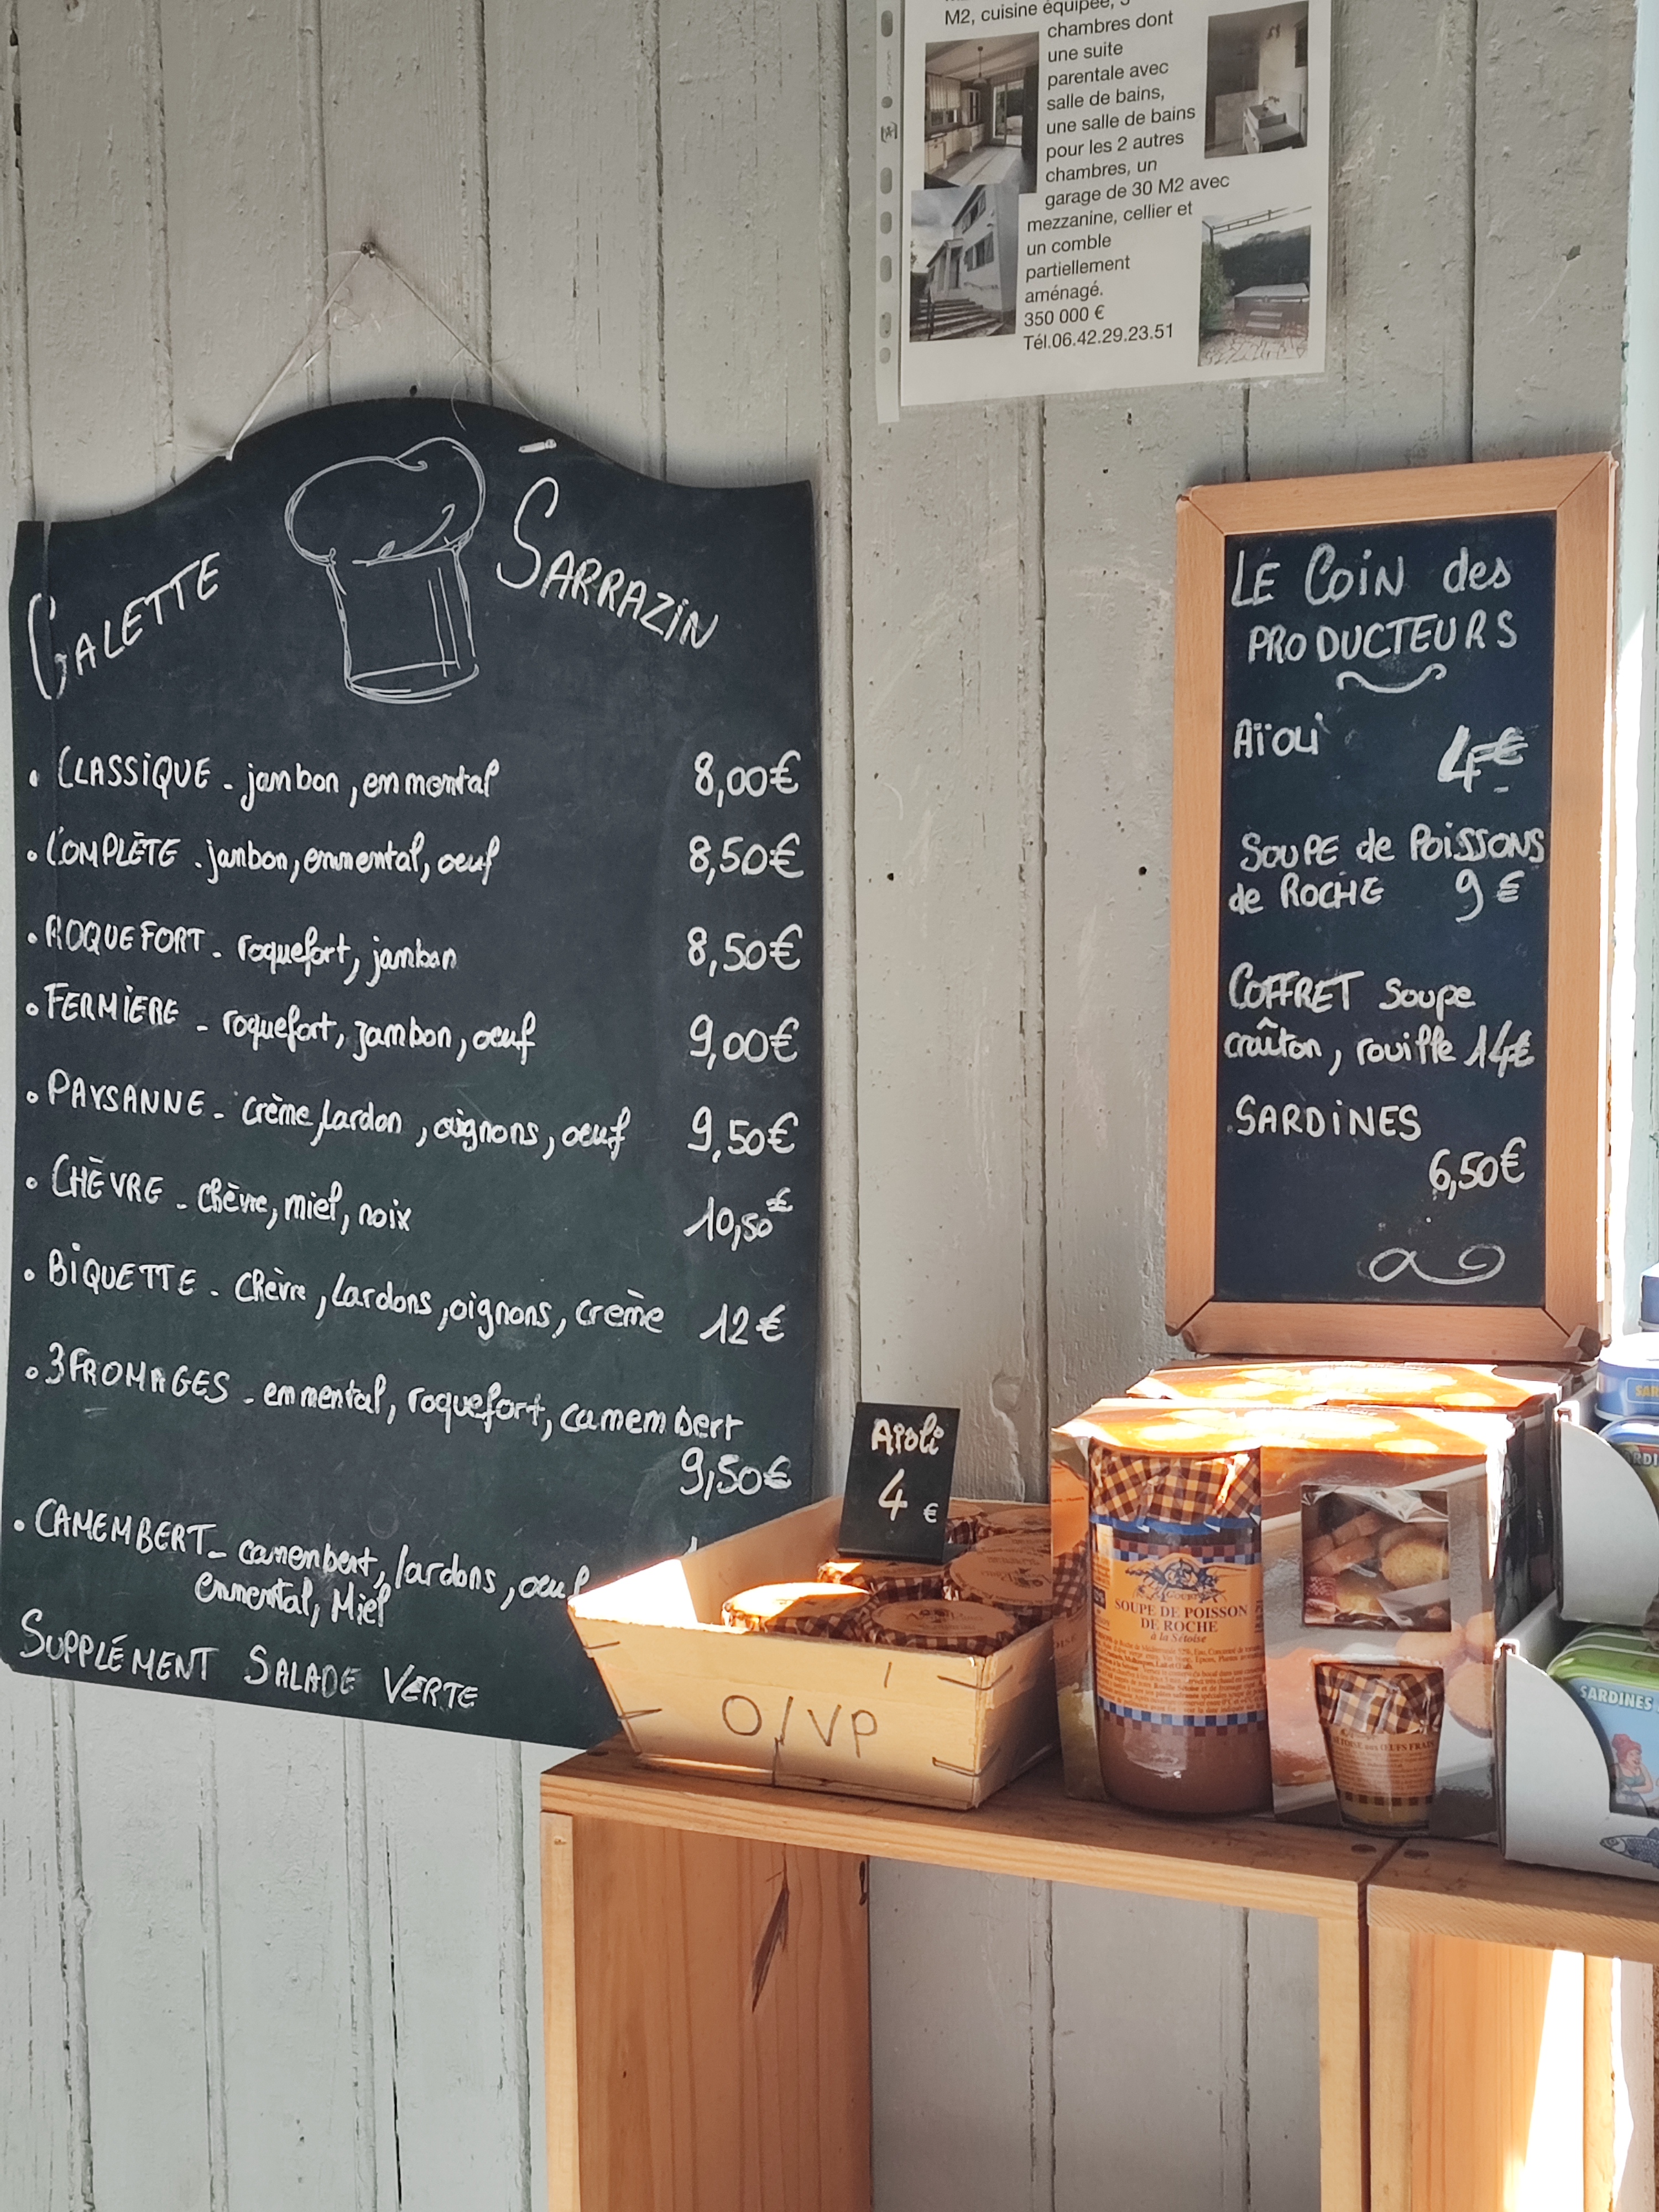 M2, cuisine équipée, 3
chambres dont
une suite
parentale avec
salle de bains,
une salle de bains
pour les 2 autres
chambres, un
garage de 30 M2 avec
mezzanine, cellier et
un comble
partiellement
aménagé.
350 000 €
Tél.06.42.29.23.51
GALETTE SARRAZIN
• CLASSIQUE - jambon, emmental 8,00€
• COMPLÈTE - jambon, emmental, oeuf 8,50€
• ROQUEFORT - roquefort, jambon 8,50€
• FERMIERE - roquefort, jambon, oeuf 9,00€
• PAYSANNE - crème, lardon, oignons, oeuf 9,50€
• CHÈVRE - chèvre, miel, noix 10,50€
• BIQUETTE - Chèvre, Lardons, oignons, crème 12€
• 3 FROMAGES - emmental, roquefort, camembert
9,50€
• CAMEMBERT - camembert, lardons, oeuf
emmental, Miel
SUPPLÉMENT SALADE VERTE
LE COIN des
PRODUCTEURS
Aïoli 4€
SOUPE de POISSONS
de ROCHE 9€
COFFRET Soupe
croûton, rouille 14€
SARDINES
6,50€
Aïoli
4 €
O/VP
SOUPE DE POISSON
DE ROCHE
à la Sétoise
SARDINES